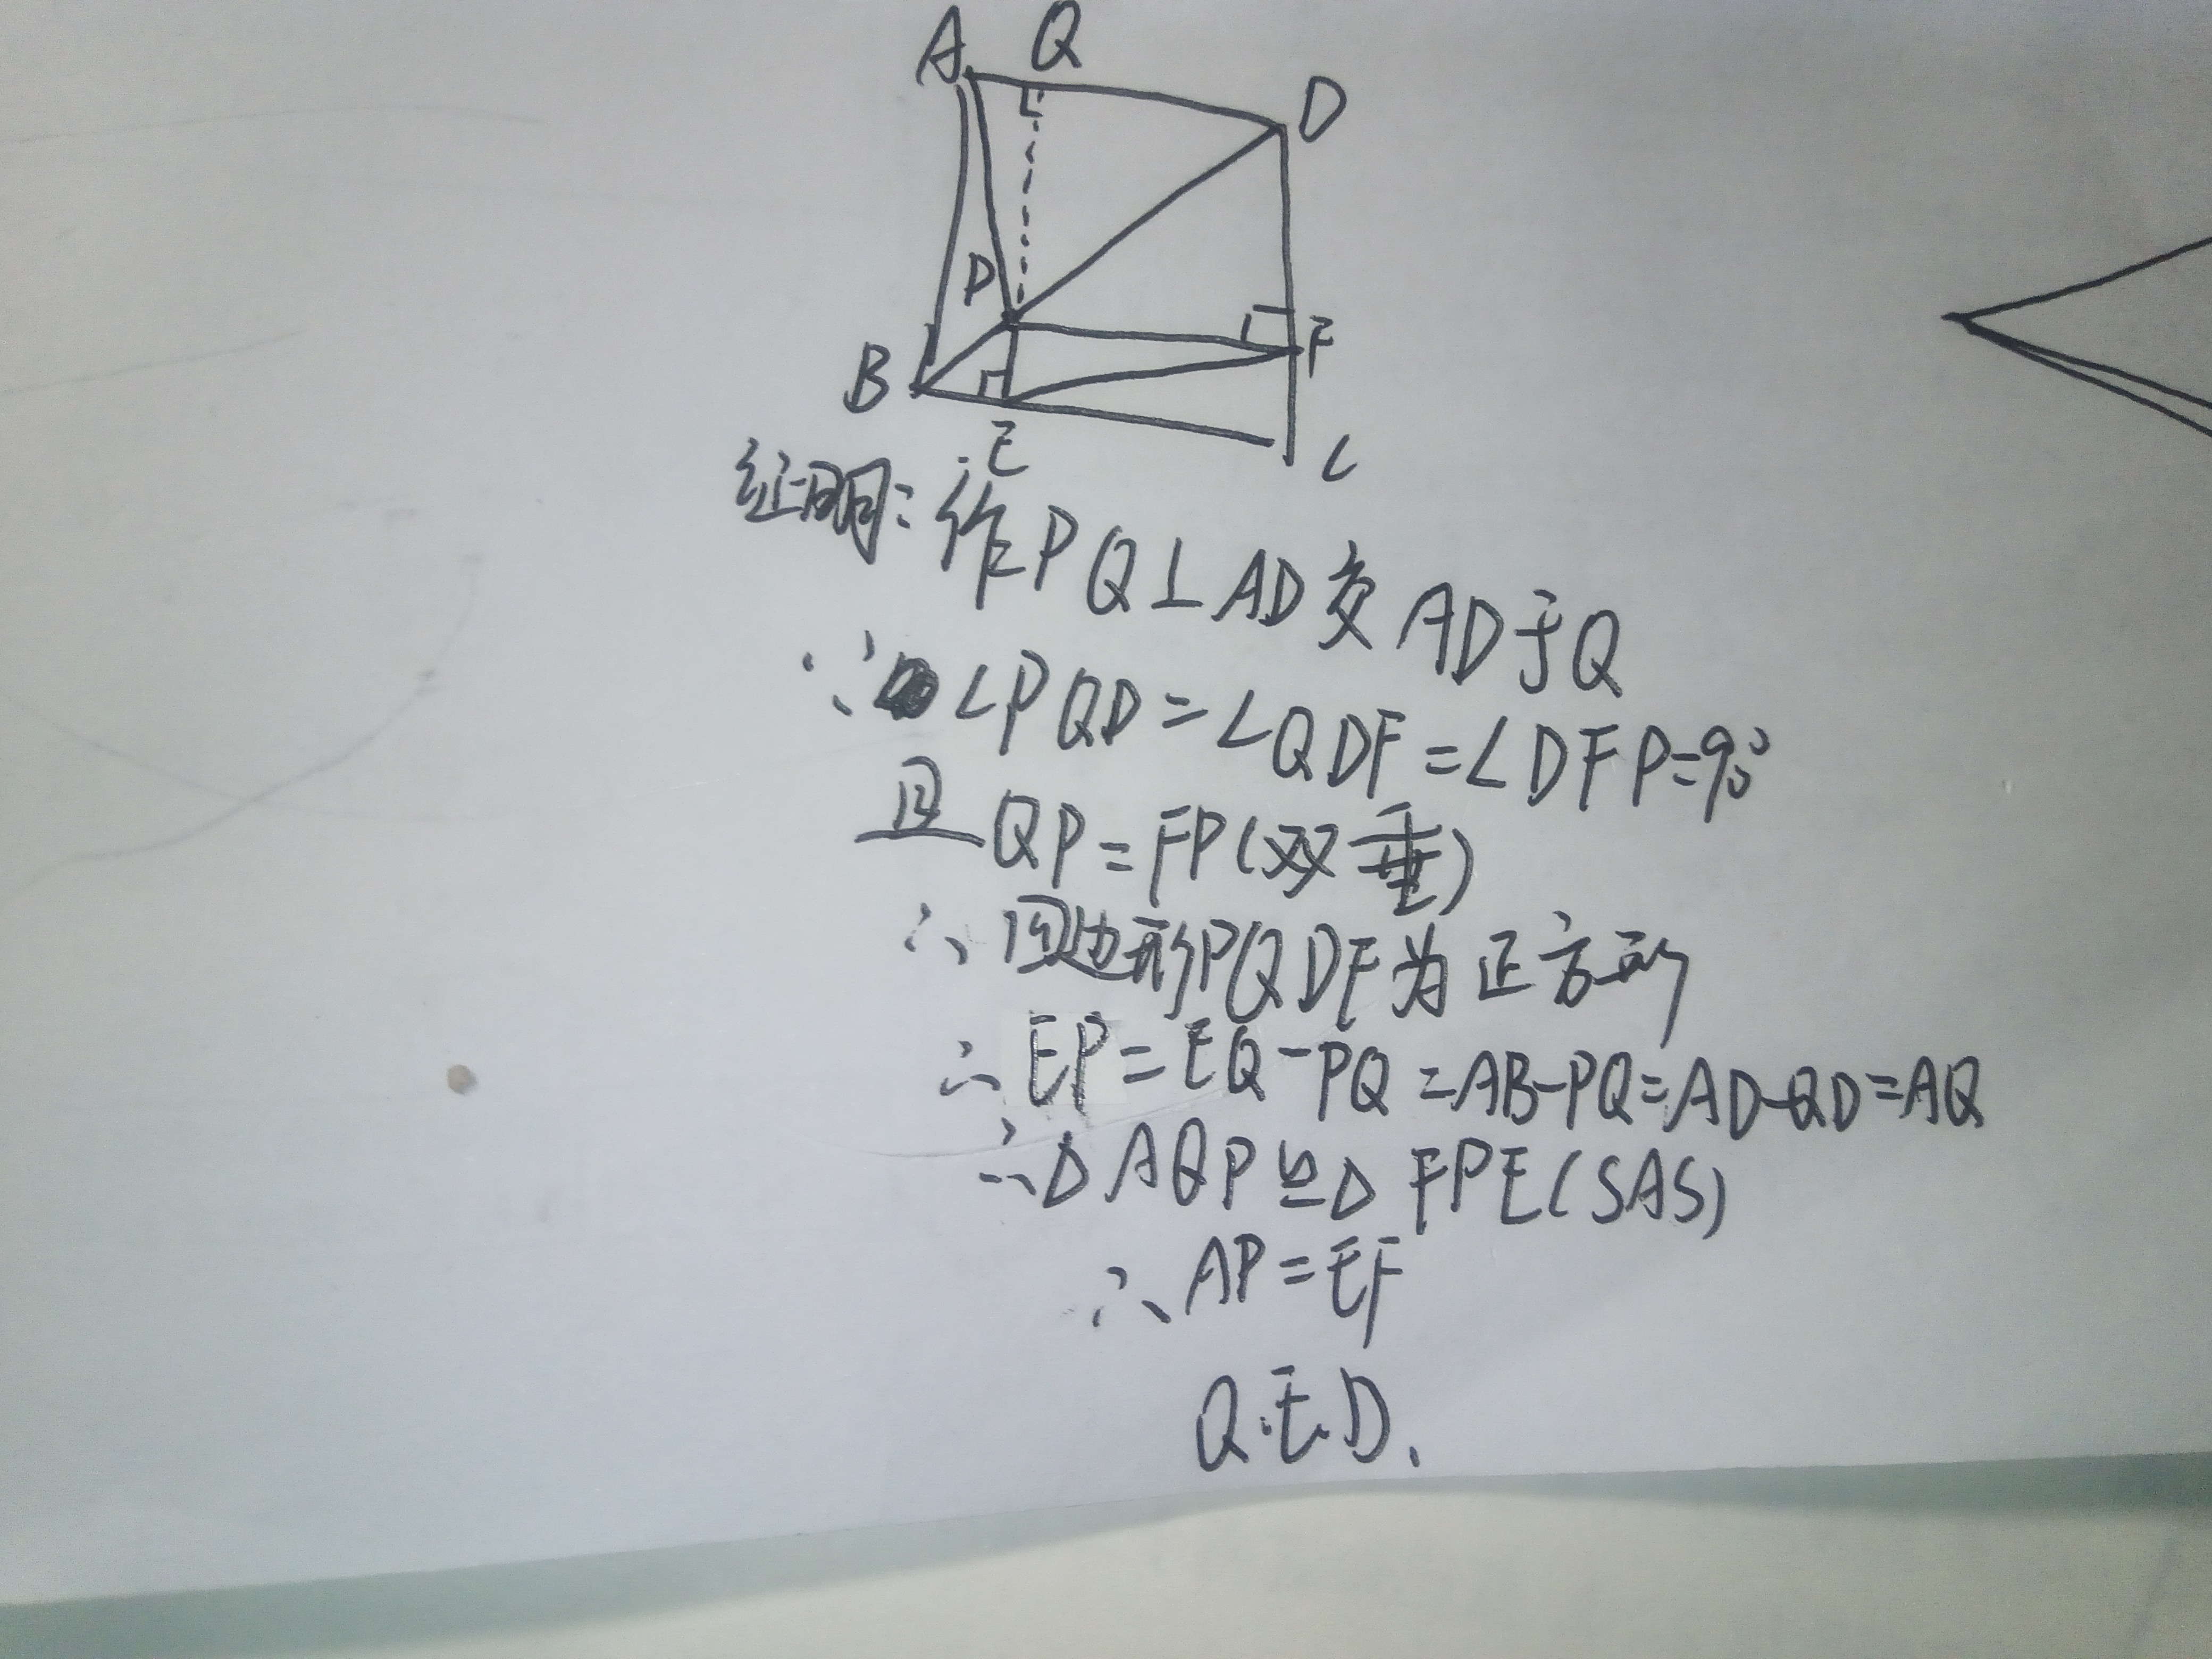 A Q
D
P
F
B
E
C
证明:作PQ⊥AD交AD于Q
∵∠PQD=∠QDF=∠DFP=90°
且QP=FP(双垂)
∴四边形PQDF为正方形
∴EP=EQ-PQ=AB-PQ=AD-QD=AQ
∴△AQP≌△FPE(SAS)
∴AP=EF
Q.E.D.